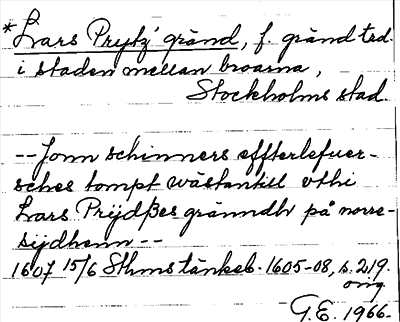 *Lars Prytz' gränd, f. gränd trol.
i staden mellan broarna,
Stockholms stad.
-- Jonn schinners effterlefuer-
sches tompt wästantill vthi
Lars Prÿdβes gränndh på norre-
sijdhenn --
1607 15/6 Sthms tänkeb. 1605-08, s. 219.
orig.
G.E. 1966.